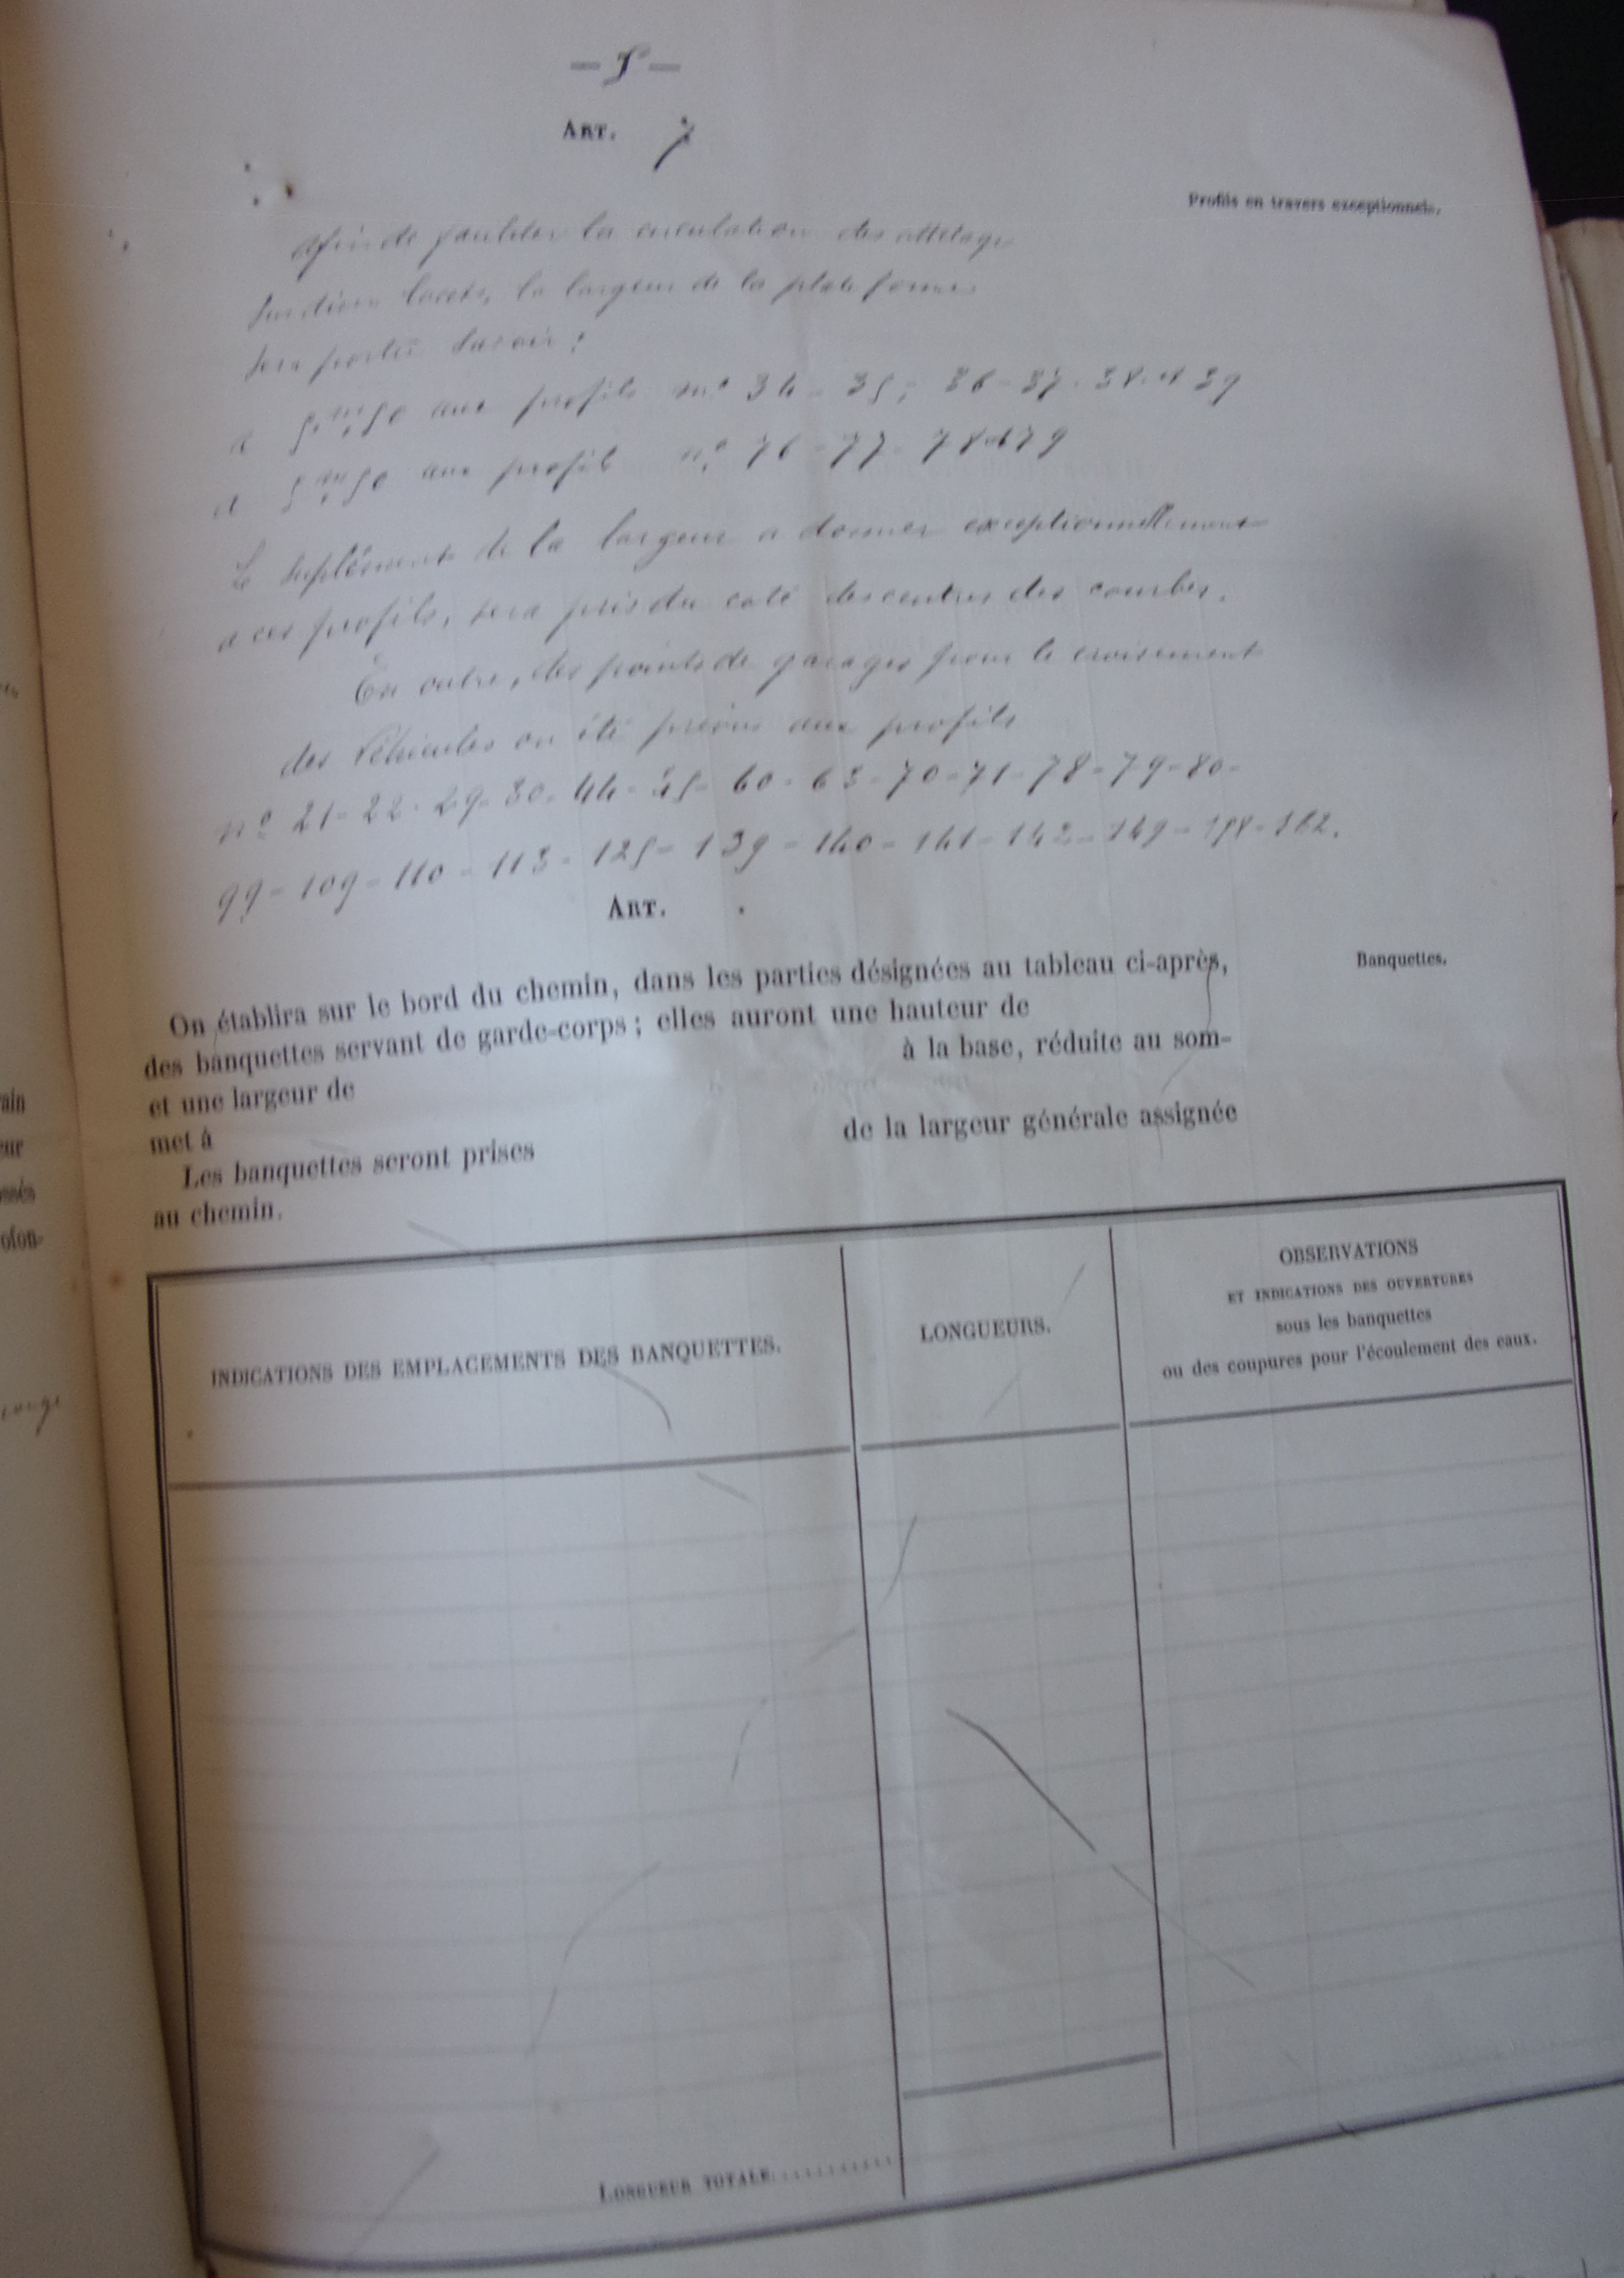 — 5 —
ART. 7
Profils en travers exceptionnels.
Afin de faciliter la circulation des attelages
sur divers lacets, la largeur de la plate forme
sera portée savoir :
a 5,m50 aux profils nos 34 - 35 - 36 - 37 - 38 et 39
a 5,m50 aux profils no 76 - 77 - 78 et 79
Le suplément de la largeur a donner exceptionnellement
a ces profils, sera pris du coté des centres des courbes.
En outre, des points de garages pour le croisement
des Véhicules on été prévus aux profils
no 21 - 22 - 29 - 30 - 44 - 45 - 60 - 63 - 70 - 71 - 78 - 79 - 80 -
99 - 109 - 110 - 113 - 125 - 139 - 140 - 141 - 142 - 149 - 158 - 162.
ART. .
Banquettes.
On établira sur le bord du chemin, dans les parties désignées au tableau ci-après,
des banquettes servant de garde-corps ; elles auront une hauteur de
et une largeur de à la base, réduite au som-
met à
Les banquettes seront prises de la largeur générale assignée
au chemin.
INDICATIONS DES EMPLACEMENTS DES BANQUETTES.
LONGUEURS.
OBSERVATIONS
ET INDICATIONS DES OUVERTURES
sous les banquettes
ou des coupures pour l'écoulement des eaux.
LONGUEUR TOTALE............